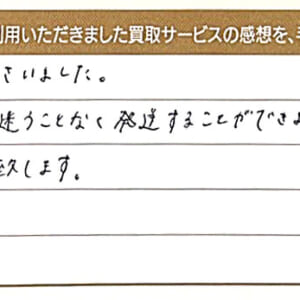 利用いただきました買取サービスの感想を、
ざいました。
迷うことなく発送することができ
致します。